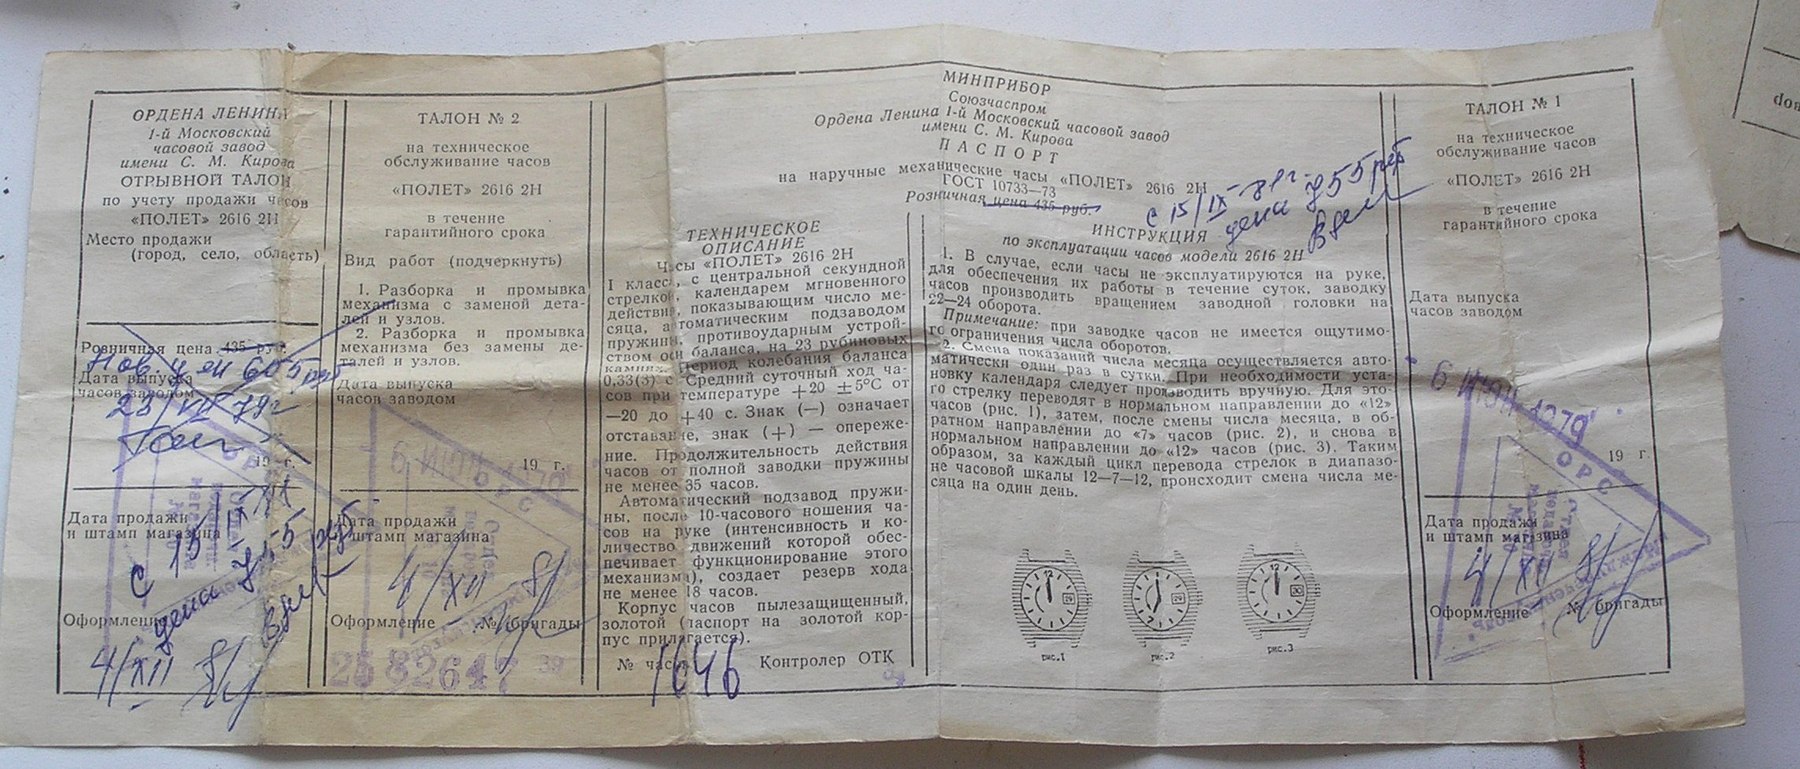 ОРДЕНА ЛЕНИНА
1-й Московский
часовой завод
имени С. М. Кирова
ОТРЫВНОЙ ТАЛОН
по учету продажи часов
«ПОЛЕТ» 2616 2Н
Место продажи
(город, село, область)
Розничная цена 435 руб.
Нов. цен 605 руб
Дата выпуска
часов заводом
23/VII 79г
19 г.
Дата продажи
и штамп магазина
с 15 IX 81
цена 755 руб
Оформление
4/XII 81
ТАЛОН № 2
на техническое
обслуживание часов
«ПОЛЕТ» 2616 2Н
в течение
гарантийного срока
Вид работ (подчеркнуть)
1. Разборка и промывка
механизма с заменой дета-
лей и узлов.
2. Разборка и промывка
механизма без замены де-
талей и узлов.
Дата выпуска
часов заводом
6 ИЮН 1979
19 г.
ОРС
Дата продажи
и штамп магазина
4/XII 81
Оформление № бригады
2582647 39
МИНПРИБОР
Союзчаспром
Ордена Ленина 1-й Московский часовой завод
имени С. М. Кирова
ПАСПОРТ
на наручные механические часы «ПОЛЕТ» 2616 2Н
ГОСТ 10733—73
Розничная цена 435 руб.
с 15/IX-81г.
цена 755 руб
ТЕХНИЧЕСКОЕ
ОПИСАНИЕ
Часы «ПОЛЕТ» 2616 2Н
I класса, с центральной секундной
стрелкой, календарем мгновенного
действия, показывающим число ме-
сяца, автоматическим подзаводом
пружины, противоударным устрой-
ством оси баланса, на 23 рубиновых
камнях. Период колебания баланса
0,33(3) с. Средний суточный ход ча-
сов при температуре +20 ±5°С от
—20 до +40 с. Знак (—) означает
отставание, знак (+) — опереже-
ние. Продолжительность действия
часов от полной заводки пружины
не менее 35 часов.
Автоматический подзавод пружи-
ны, после 10-часового ношения ча-
сов на руке (интенсивность и ко-
личество движений которой обес-
печивает функционирование этого
механизма), создает резерв хода
не менее 18 часов.
Корпус часов пылезащищенный,
золотой (паспорт на золотой кор-
пус прилагается).
№ часов 1646 Контролер ОТК
ИНСТРУКЦИЯ
по эксплуатации часов модели 2616 2Н
1. В случае, если часы не эксплуатируются на руке,
для обеспечения их работы в течение суток, заводку
часов производить вращением заводной головки на
22—24 оборота.
Примечание: при заводке часов не имеется ощутимо-
го ограничения числа оборотов.
2. Смена показаний числа месяца осуществляется авто-
матически один раз в сутки. При необходимости уста-
новку календаря следует производить вручную. Для это-
го стрелку переводят в нормальном направлении до «12»
часов (рис. 1), затем, после смены числа месяца, в об-
ратном направлении до «7» часов (рис. 2), и снова в
нормальном направлении до «12» часов (рис. 3). Таким
образом, за каждый цикл перевода стрелок в диапазо-
не часовой шкалы 12—7—12, происходит смена числа ме-
сяца на один день.
рис.1
рис.2
рис.3
ТАЛОН № 1
на техническое
обслуживание часов
«ПОЛЕТ» 2616 2Н
в течение
гарантийного срока
Дата выпуска
часов заводом
6 ИЮН 1979
19 г.
ОРС
Дата продажи
и штамп магазина
4/XII 81
Оформление № бригады